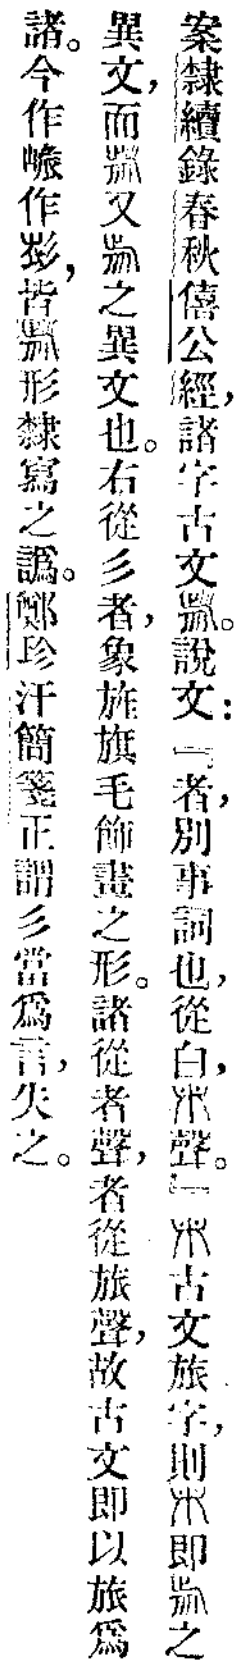 案隸續錄春秋僖公經，諸字古文。說文：「者，別事詞也，從白，聲。」古文旅字，則即之
異文，而又之異文也。右從彡者，象旌旗毛飾畫之形。諸從者聲，者從旅聲，故古文即以旅爲
諸。今作作，皆形隸寫之譌。鄭珍汗簡箋正謂彡當爲言，失之。